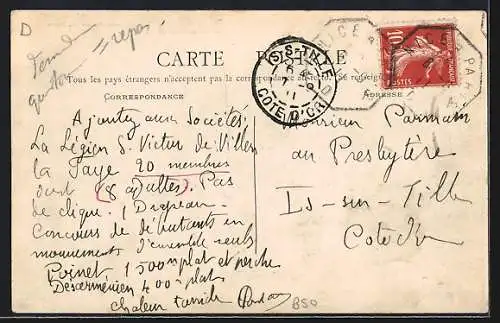 D
CARTE POSTALE
Tous les pays étrangers n'acceptent pas la correspondance
CORRESPONDANCE
ADRESSE
IS-S-TILLE
COTE-D'OR
10
Ajoutez aux Sociétés:
La Légion St Victor de Villers
la Faye 20 membres
dont (8 adultes). Pas
de clique. 1 Drapeau.
Concours de débutants en
mouvements d'ensemble seuls
Poinet 1500m plat et perche
Desserménien 400m plat
chaleur torride
B50
Monsieur Parmain
au Presbytère
Is-sur-Tille
Cote d'Or